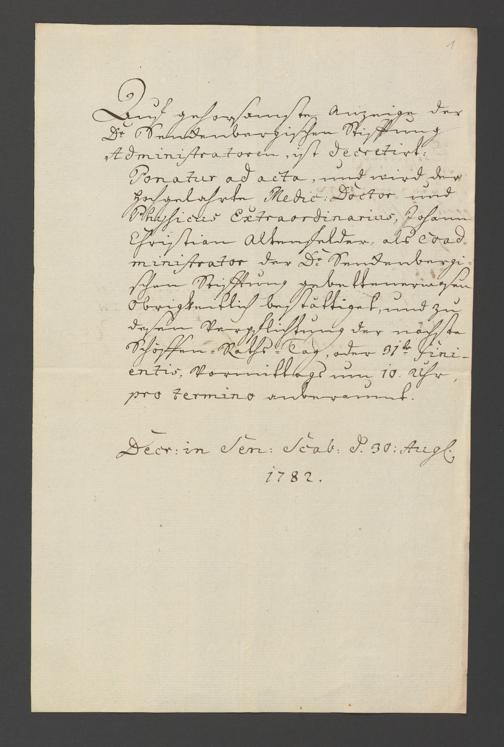 1
Auf gehorsamste Anzeige der
Dr Senckenbergischen Stifftung
Administratoren, ist decretirt:
Ponatur ad acta, und wird der
hochgelahrte Medic: Doctor und
Physicus Extraordinarius, Johann
Christian Altenfelder, als Coad-
ministrator der Dr Senckenbergi-
schen Stifftung gebettenermasen
Obrigkeitlich bestättiget, und zu
desen Verpflichtung der nächste
Schöffen-Raths-Tag, oder 31te Fini-
entis, Vormittags um 10. Uhr,
pro termino anberaumt.
Decr: in Sen: Scab: d. 30: Augl.
1782.